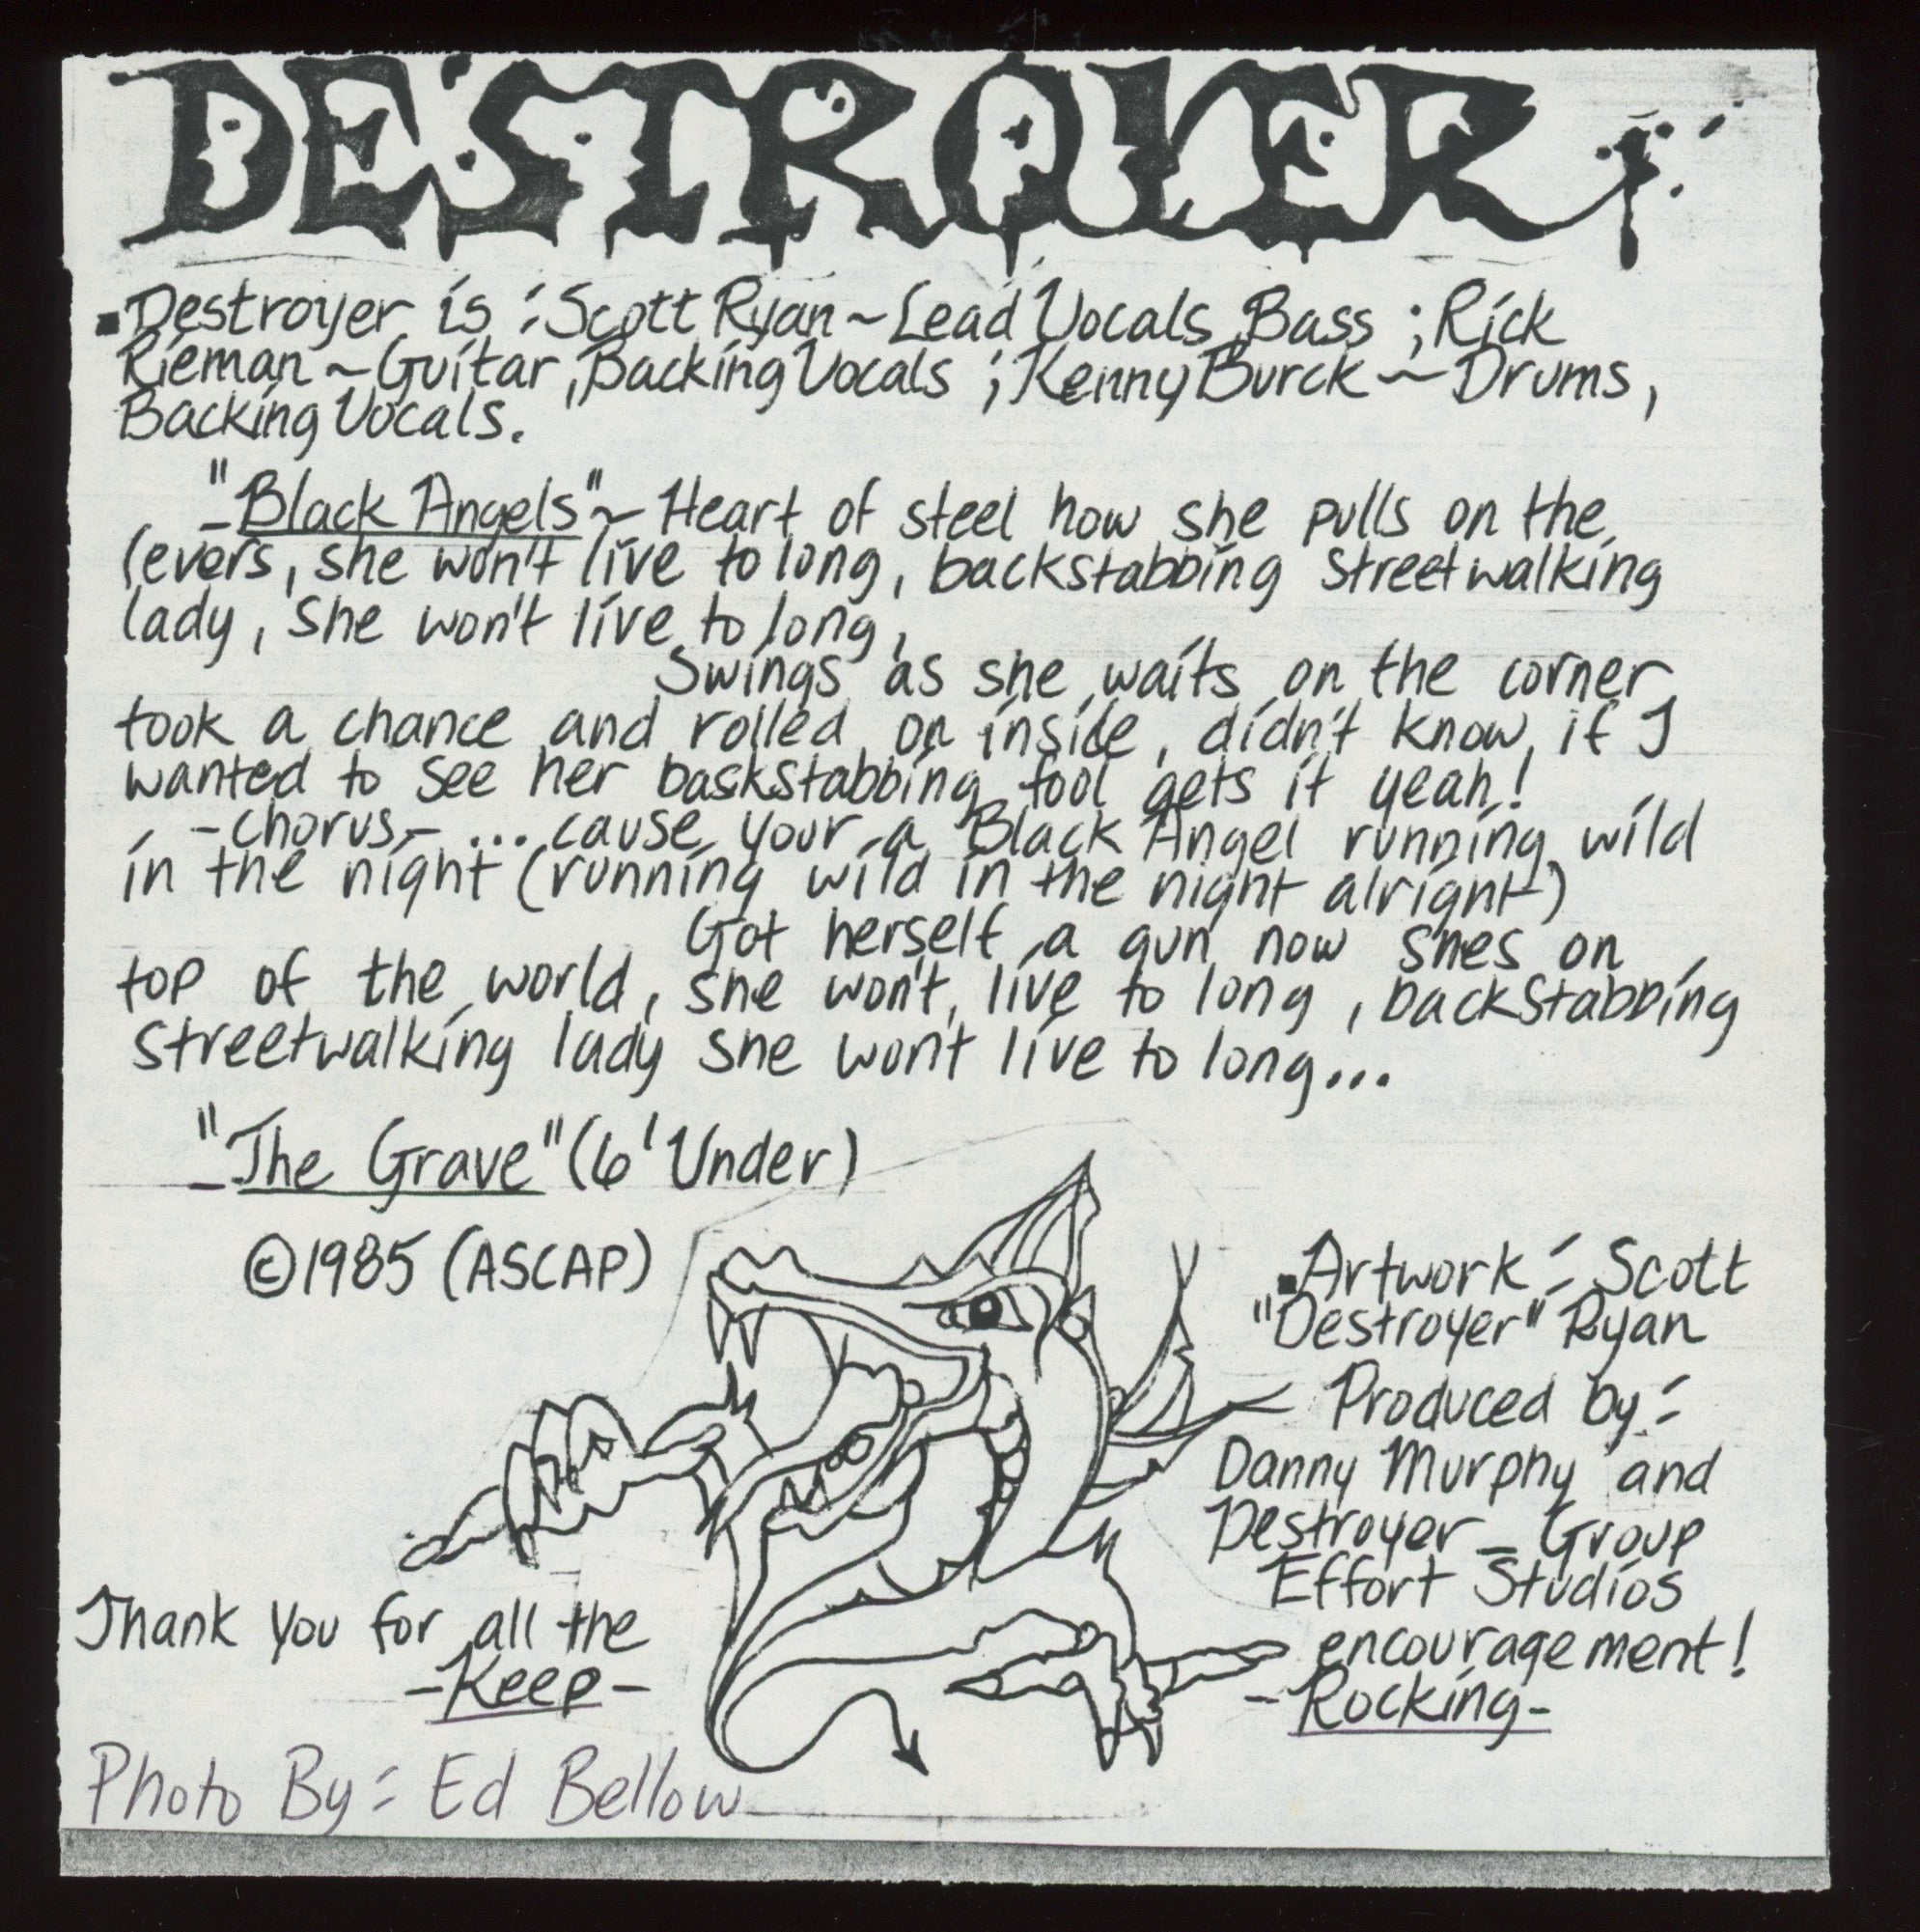 DESTROYER
▪Destroyer is : Scott Ryan ~ Lead Vocals, Bass ; Rick
Rieman ~ Guitar, Backing Vocals ; Kenny Burck ~ Drums,
Backing Vocals.
"Black Angels" ~ Heart of steel how she pulls on the
levers, she won't live to long, backstabbing streetwalking
lady, she won't live to long,
Swings as she waits on the corner,
took a chance and rolled on inside, didn't know if I
wanted to see her baskstabbing fool gets it yeah!
-chorus- ... cause your a Black Angel running wild
in the night (running wild in the night alright)
Got herself a gun now shes on
top of the world, she won't live to long, backstabbing
streetwalking lady she won't live to long...
"The Grave" (6' Under)
©1985 (ASCAP)
▪Artwork : Scott
"Destroyer" Ryan
Produced by :
Danny Murphy and
Destroyer - Group
Effort Studios
Thank you for all the encouragement!
-Keep- -Rocking-
Photo By : Ed Bellow